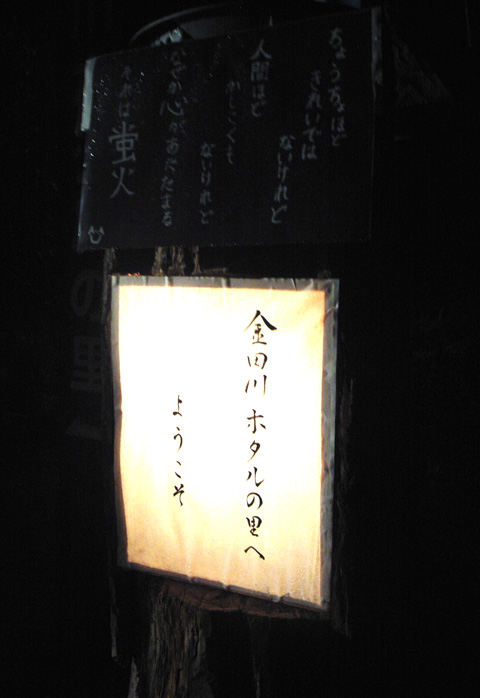 ちょうちょほど
きれいでは
ないけれど
人間ほど
かしこくも
ないけれど
なぜか心があたたまる
それは蛍火
金田川 ホタルの里へ
ようこそ
の里